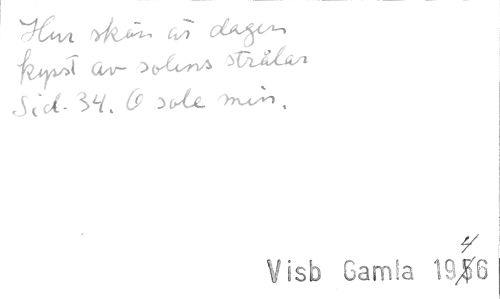 Hur skön är dagen
kysst av solens strålar
Sid. 34. O sole min.
Visb Gamla 1946